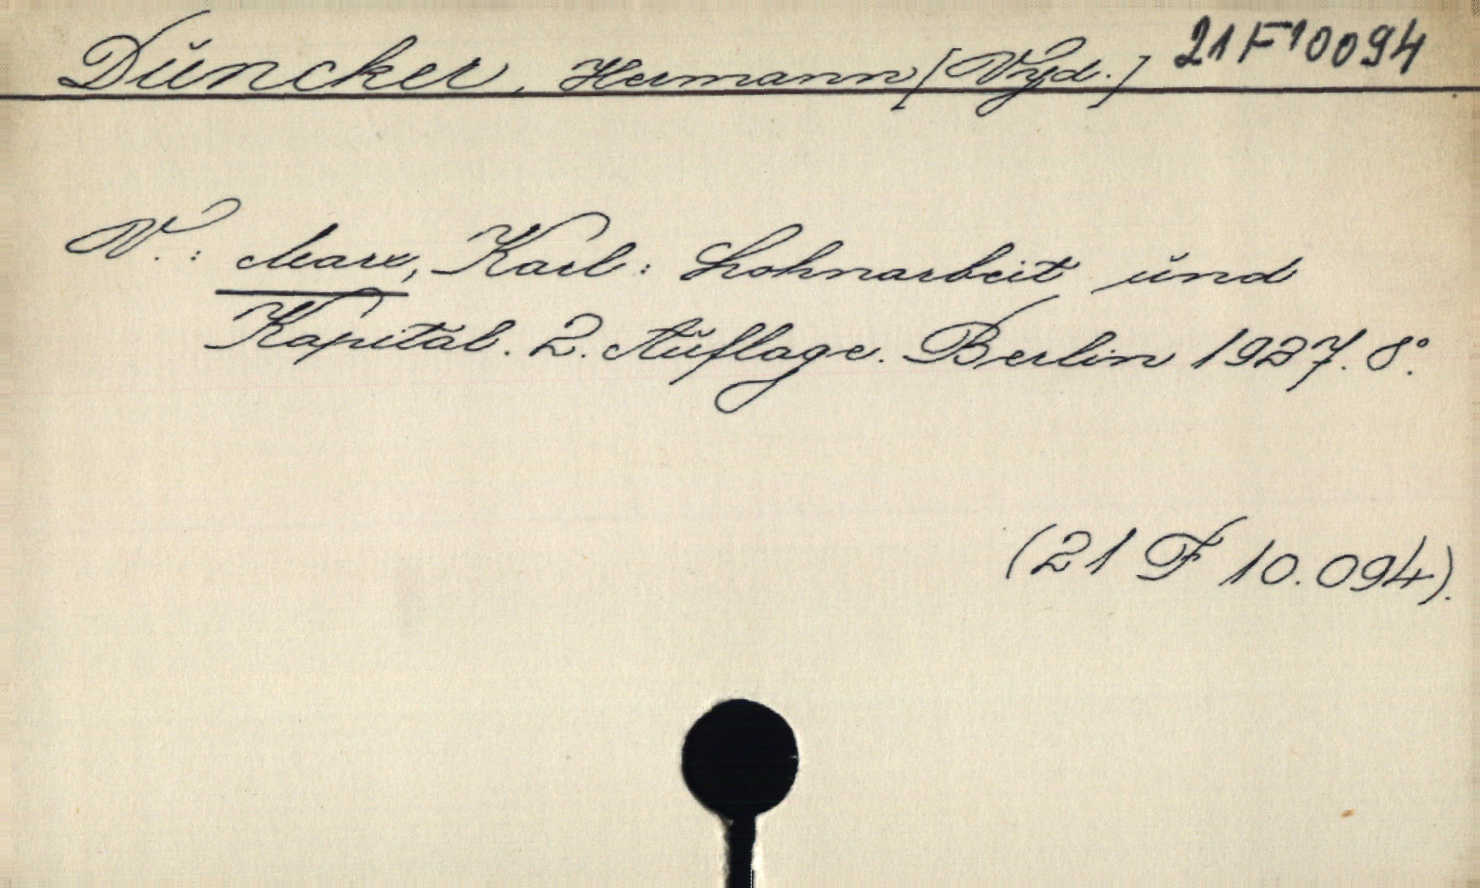 Duncker, Hermann [Vyd.] 21F10094
V.: Marx, Karl: Lohnarbeit und
Kapital. 2. Auflage. Berlin 1927. 8°.
(21 F 10.094).